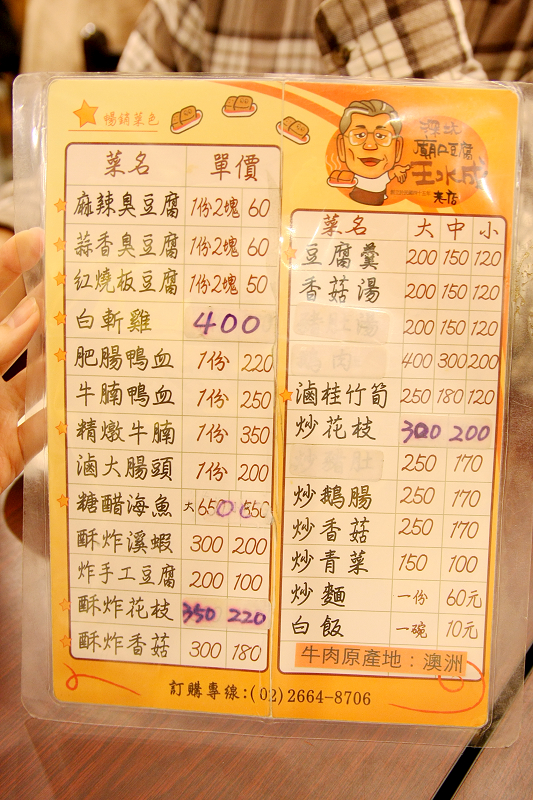 暢銷菜色
菜名 單價
麻辣臭豆腐 1份2塊 60
蒜香臭豆腐 1份2塊 60
紅燒板豆腐 1份2塊 50
白斬雞 400
肥腸鴨血 1份 220
牛腩鴨血 1份 250
精燉牛腩 1份 350
滷大腸頭 1份 200
糖醋海魚 大650 550
酥炸溪蝦 300 200
炸手工豆腐 200 100
酥炸花枝 350 220
酥炸香菇 300 180
深坑
廟口豆腐
王水成
老店
菜名 大 中 小
豆腐羹 200 150 120
香菇湯 200 150 120
200 150 120
400 300 200
滷桂竹筍 250 180 120
炒花枝 300 200
250 170
炒鵝腸 250 170
炒香菇 250 170
炒青菜 150 100
炒麵 一份 60元
白飯 一碗 10元
牛肉原產地：澳洲
訂購專線:(02)2664-8706